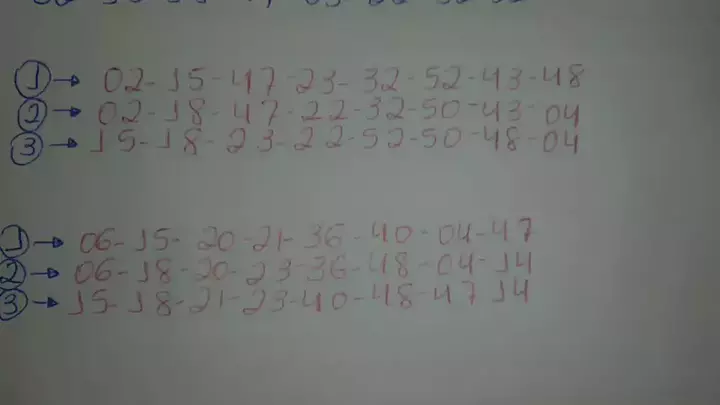 ① → 02-15-47-23-32-52-43-48
② → 02-18-47-22-32-50-43-04
③ → 15-18-23-22-52-50-48-04
① → 06-15-20-21-36-40-04-47
② → 06-18-20-23-36-48-04-14
③ → 15-18-21-23-40-48-47 14